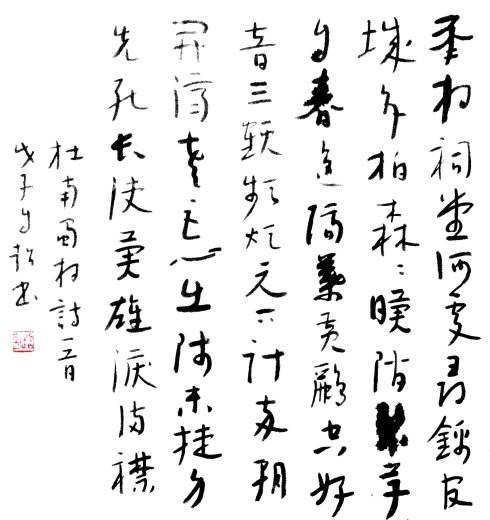 丞相祠堂何處尋錦官
城外柏森々暎階碧草
自春色隔葉黃鸝空好
音三顧頻煩天下計兩朝
開濟老臣心出師未捷身
先死長使英雄淚滿襟
杜甫蜀相詩一首
戊子自書